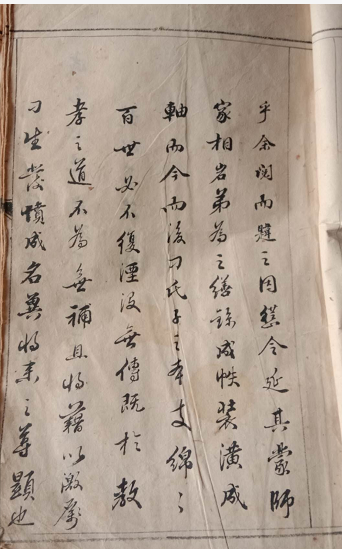 乎余闵而韪之因慫令延其蒙師
家相岩弟為之繕錄成帙装潢成
軸而今而後刁氏子之本支綿々
百世必不復湮没無傳既於教
孝之道不為無補且将藉以激厲
刁生發憤成名冀将来之尊顯也